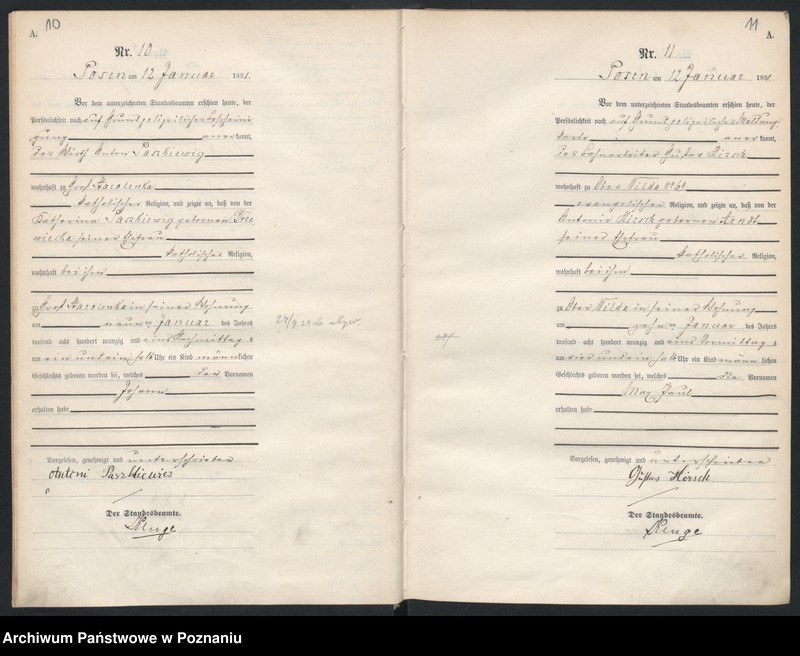 10
A.
Nr. 10
Posen am 12 Januar 1891
Vor dem unterzeichneten Standesbeamten erschien heute, der
Persönlichkeit nach auf Grund polizeilicher Beschein
gung anerkannt,
der Wirth Anton Paszkiewig
wohnhaft zu Groß Starolenka
katholischer Religion, und zeigte an, daß von der
Katharina Paszkiewig gebornen
seiner Ehefrau
katholischer Religion,
wohnhaft bei ihm
zu Groß Starolenka in seiner Wohnung
am neunten Januar des Jahres
tausend acht hundert neunzig und eins Nachmittag s
um ein und ein halb Uhr ein Kind männlichen
Geschlechts geboren worden sei, welches den Vornamen
Johann
erhalten habe
Vorgelesen, genehmigt und unterschrieben
Antoni Paszkiewicz
Der Standesbeamte.
11
A.
Nr. 11
Posen am 12 Januar 1891
Vor dem unterzeichneten Standesbeamten erschien heute, der
Persönlichkeit nach auf Grund polizeilicher Meldungs
karte anerkannt,
der Bahnarbeiter Gustav Hirsch
wohnhaft zu Ober Wilda No
evangelischer Religion, und zeigte an, daß von der
Antonie Hirsch gebornen Arndt
seiner Ehefrau
katholischer Religion,
wohnhaft bei ihm
zu Ober Wilda in seiner Wohnung
am zehnten Januar des Jahres
tausend acht hundert neunzig und eins Vormittag s
um vier und ein halb Uhr ein Kind männlichen
Geschlechts geboren worden sei, welches die Vornamen
Max Paul
erhalten habe
Vorgelesen, genehmigt und unterschrieben
Gustav Hirsch
Der Standesbeamte.
Archiwum Państwowe w Poznaniu